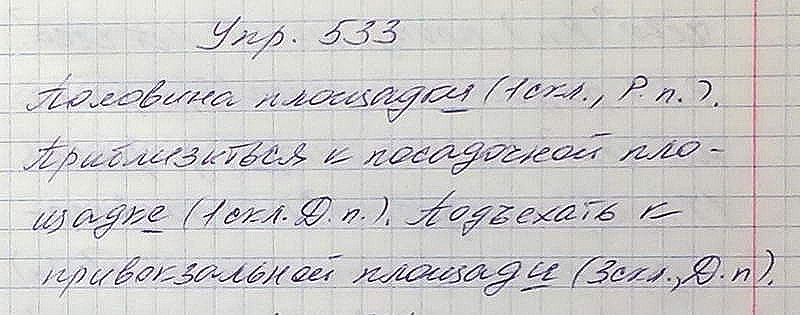 Упр. 533
Половина площадки (1скл., Р.п.).
Приблизиться к посадочной пло-
щадке (1скл. Д.п.). Подъехать к
привокзальной площади (3скл., Д.п).